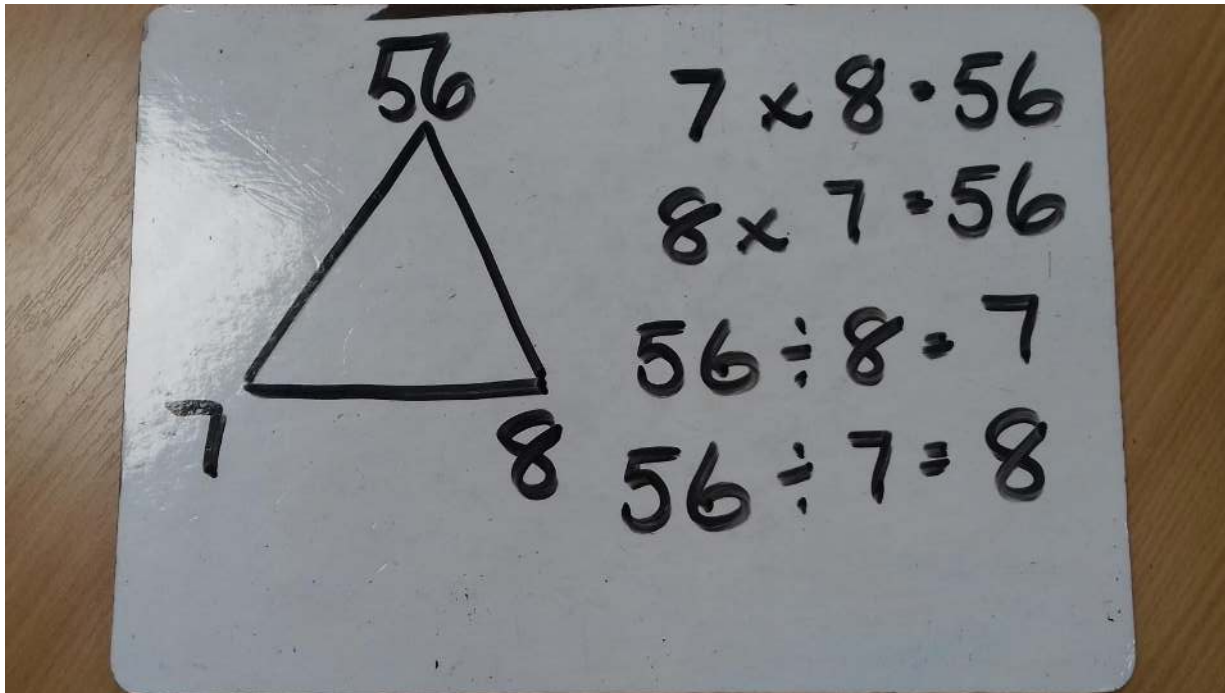 56
7 8
7 × 8 = 56
8 × 7 = 56
56 ÷ 8 = 7
56 ÷ 7 = 8